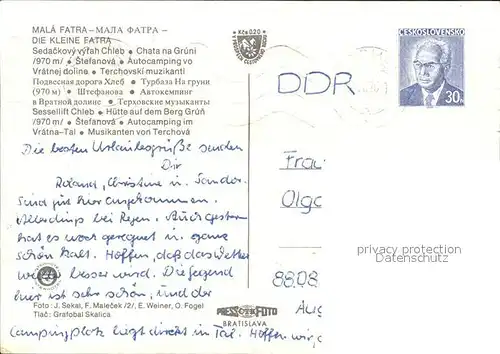 MALÁ FATRA – МАЛА ФАТРА –
DIE KLEINE FATRA
Sedačkový výťah Chleb ● Chata na Grúni
/970 m/ ● Štefanová ● Autocamping vo
Vrátnej doline ● Terchovskí muzikanti
Подвесная дорога Хлеб ● Турбаза На груни
(970 м) ● Штефанова ● Автокемпинг
в Вратной долине ● Терховские музыканты
Sessellift Chleb ● Hütte auf dem Berg Grúň
/970 m/ ● Štefanová ● Autocamping im
Vrátna-Tal ● Musikanten von Terchová
Kčs 0,20
ČESKOSLOVENSKO
30h
DDR
Die besten Urlaubsgrüße senden
Dir
Roland, Christine u. Sandor.
Sind gut hier angekommen.
Allerdings bei Regen. Auch gestern
hat es noch geregnet u. ganz
schön kalt. Hoffen, daß das Wetter
besser wird. Die Gegend
hier ist sehr schön, und der
Campingplatz liegt direkt im Tal. Hoffen wir
Frau
Olga
8808
privacy protection
Datenschutz
Foto: J. Sekal, F. Maleček /2/, E. Weiner, O. Fogel
Tlač: Grafobal Skalica
PRESSFOTO
BRATISLAVA